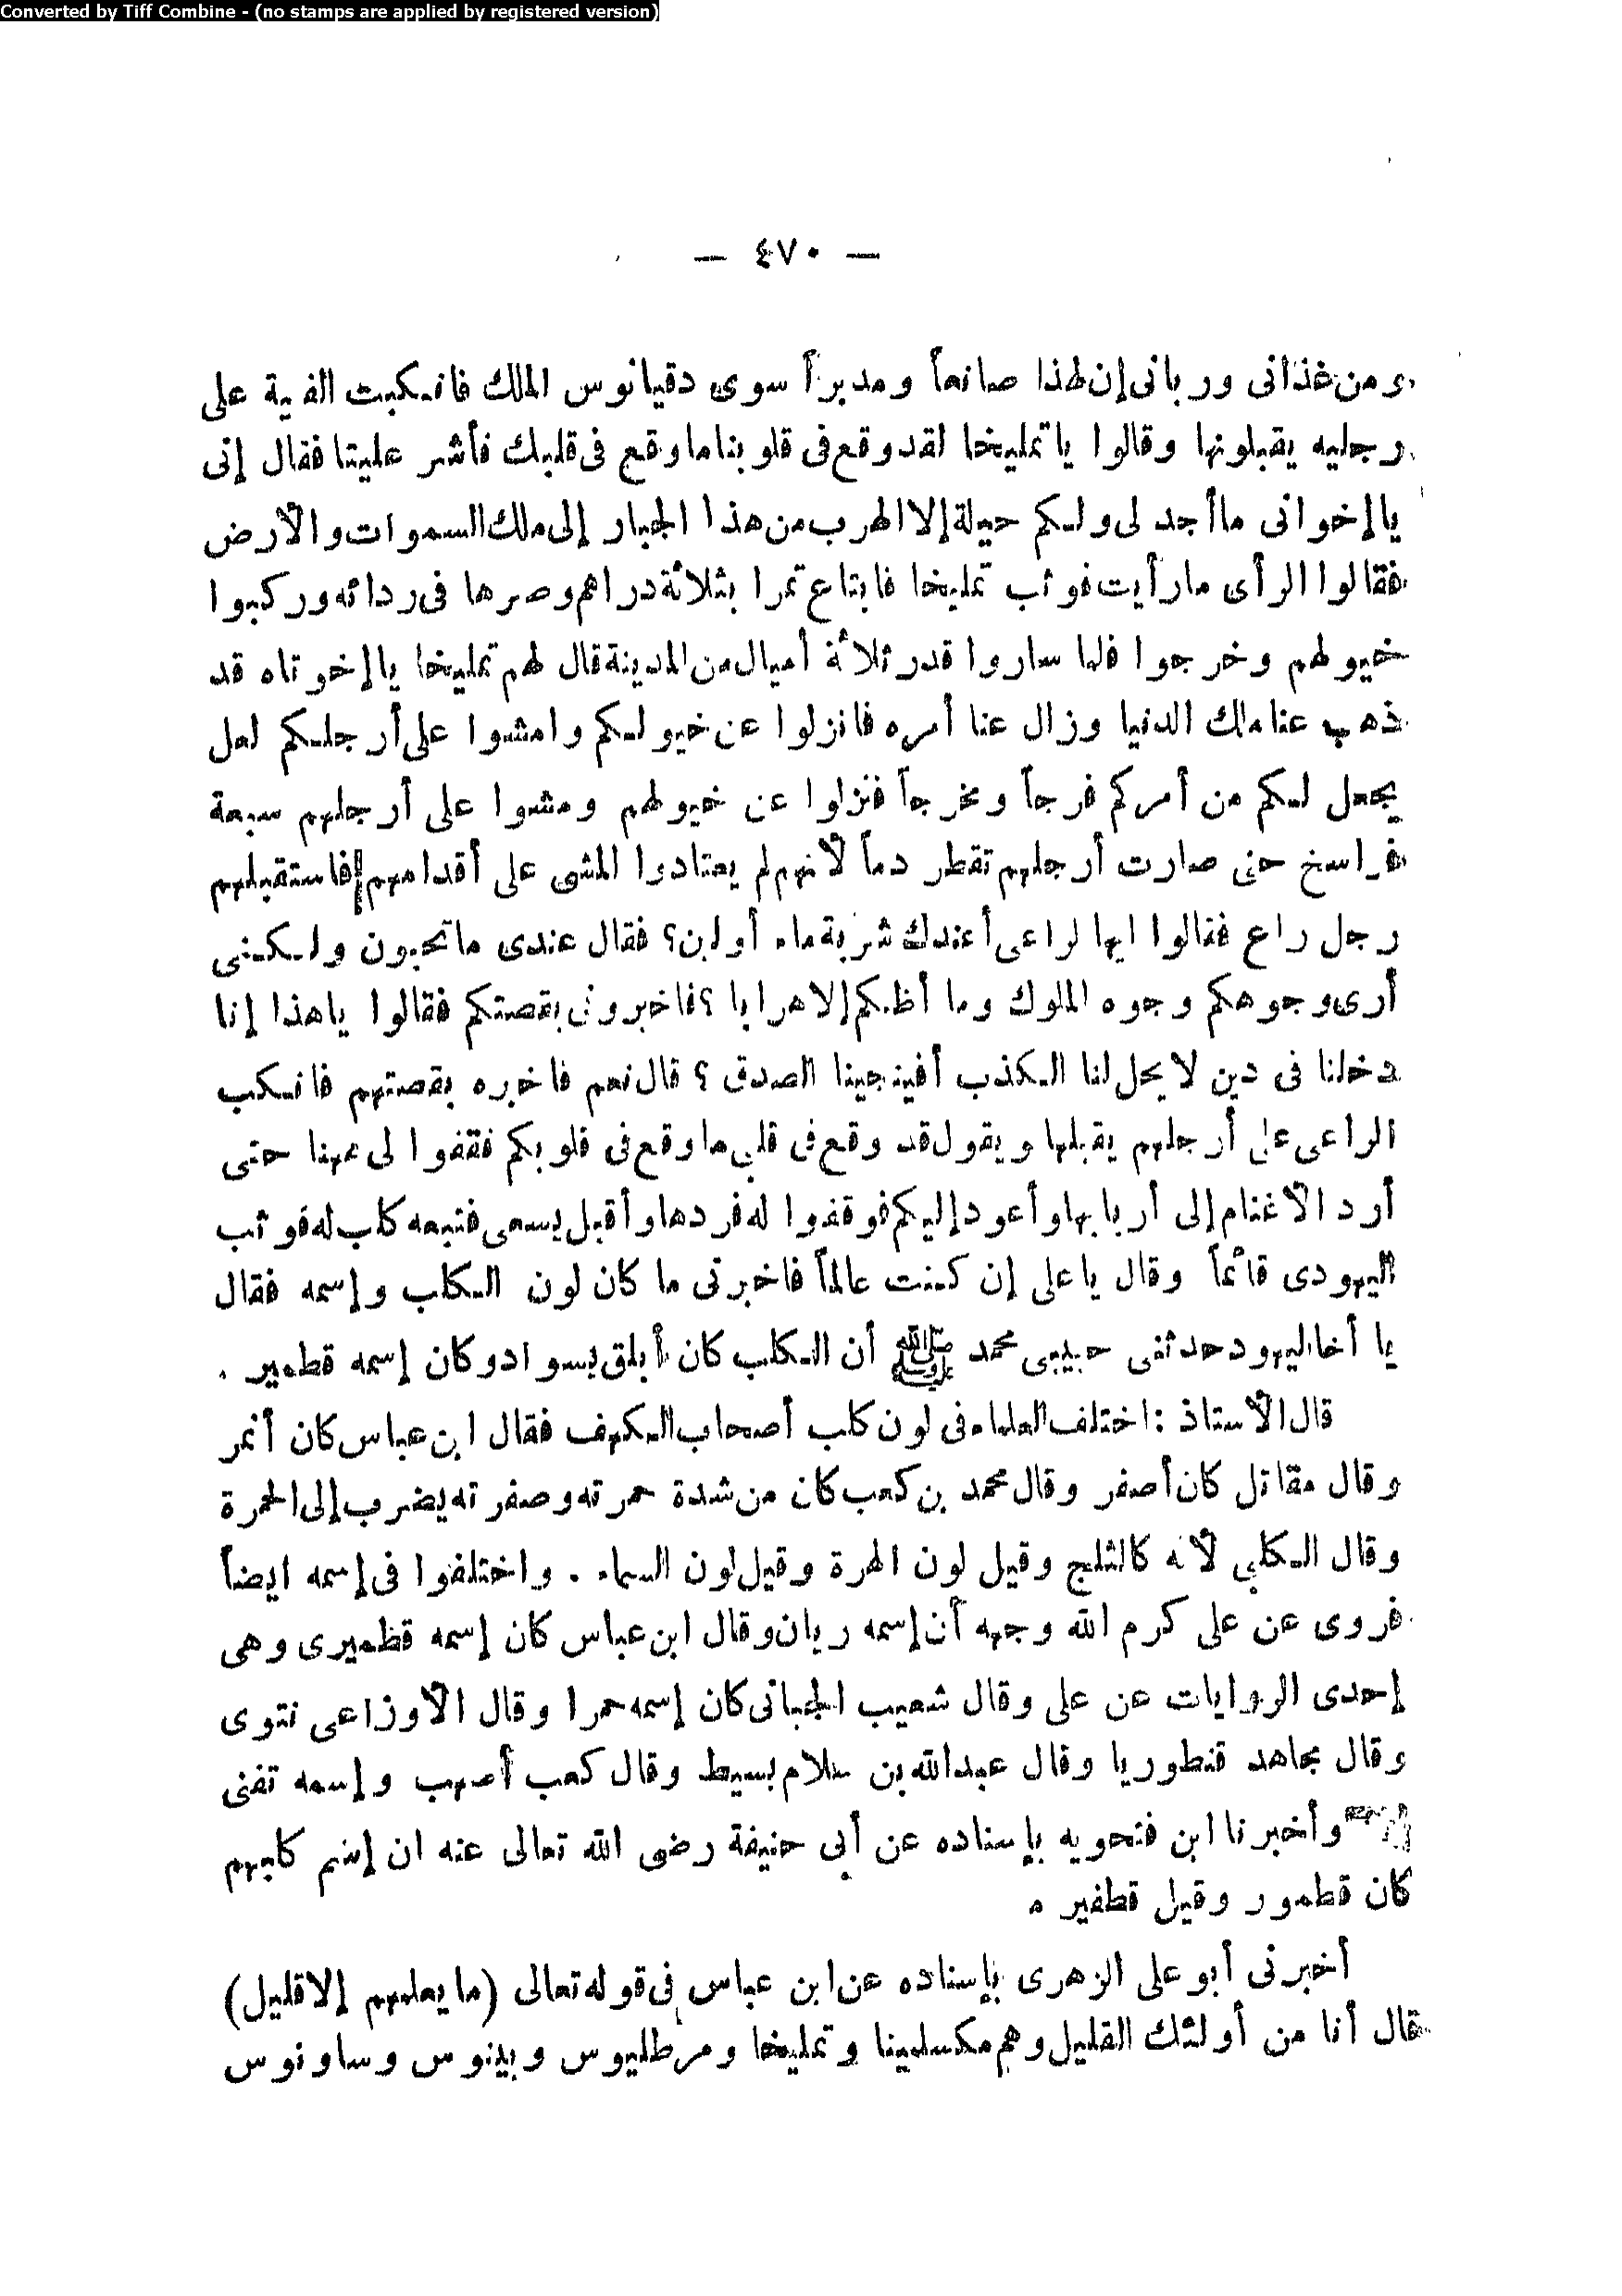 Converted by Tiff Combine - (no stamps are applied by registered version)
— ٤٧٠ —
ومن غذانى وربانى إن لهذا صانعاً ومدبراً سوى دقيانوس الملك فانكبت الفتية على
رجليه يقبلونها وقالوا ياتمليخا لقد وقع فى قلوبنا ما وقع فى قلبك فأشر علينا فقال إنى
يا إخوانى ما أجد لى ولكم حيلة إلا الهرب من هذا الجبار إلى ملك السموات والأرض
فقالوا الرأى ما رأيت فوثب تمليخا فابتاع تمرا بثلاثة دراهم وصرها فى ردائه وركبوا
خيولهم وخرجوا فلما ساروا قدر ثلاثة أميال من المدينة قال لهم تمليخا يا إخوتاه قد
ذهب عنا ملك الدنيا وزال عنا أمره فانزلوا عن خيولكم وامشوا على أرجلكم لعل
يجعل لكم من أمركم فرجاً ومخرجاً فنزلوا عن خيولهم ومشوا على أرجلهم سبعة
فراسخ حتى صارت أرجلهم تقطر دماً لأنهم لم يعتادوا المشى على أقدامهم فاستقبلهم
رجل راع فقالوا ايها لراعى أعندك شربة ماء أو لبن؟ فقال عندى ماتحبون ولكننى
أرى وجوهكم وجوه الملوك وما أظنكم إلا هرابا ؟ فاخبرونى بقصتكم فقالوا ياهذا إنا
دخلنا فى دين لا يحل لنا الكذب أفينجينا الصدق ؟ قال نعم فاخبره بقصتهم فانكب
الراعى على أرجلهم يقبلها ويقول قد وقع فى قلبى ما وقع فى قلوبكم فقفوا لى ههنا حتى
أرد الأغنام إلى أربابها وأعود إليكم فوقفوا له فردها وأقبل يسعى فتبعه كلب له فوثب
اليهودى قائماً وقال ياعلى إن كنت عالماً فاخبرنى ما كان لون الكلب وإسمه فقال
يا أخا اليهود حدثنى حبيبى محمد ﷺ أن الكلب كان أبلق بسواد وكان إسمه قطمير .
قال الأستاذ : اختلف العلماء فى لون كلب أصحاب الكهف فقال ابن عباس كان أنمر
وقال مقاتل كان أصفر وقال محمد بن كعب كان من شدة حمرته وصفرته يضرب إلى الحمرة
وقال الكلبى لأنه كالثلج وقيل لون الهرة وقيل لون السماء . واختلفوا فى إسمه ايضاً
فروى عن على كرم الله وجهه أن إسمه ريان وقال ابن عباس كان إسمه قظميرى وهى
إحدى الروايات عن على وقال شعيب الجبانى كان إسمه حمرا وقال الأوزاعى نتوى
وقال مجاهد قنطوريا وقال عبدالله بن سلام بسيط وقال كعب أصهب وإسمه تفنى
وأخبرنا ابن فنحويه بإسناده عن أبى حنيفة رضى الله تعالى عنه ان إسم كلبهم
كان قطمور وقيل قطفير .
أخبرنى أبو على الزهرى بإسناده عن ابن عباس فى قوله تعالى (ما يعلمهم إلا قليل)
قال أنا من أولئك القليل وهم مكسلمينا وتمليخا ومرطليوس وبينوس وساونوس